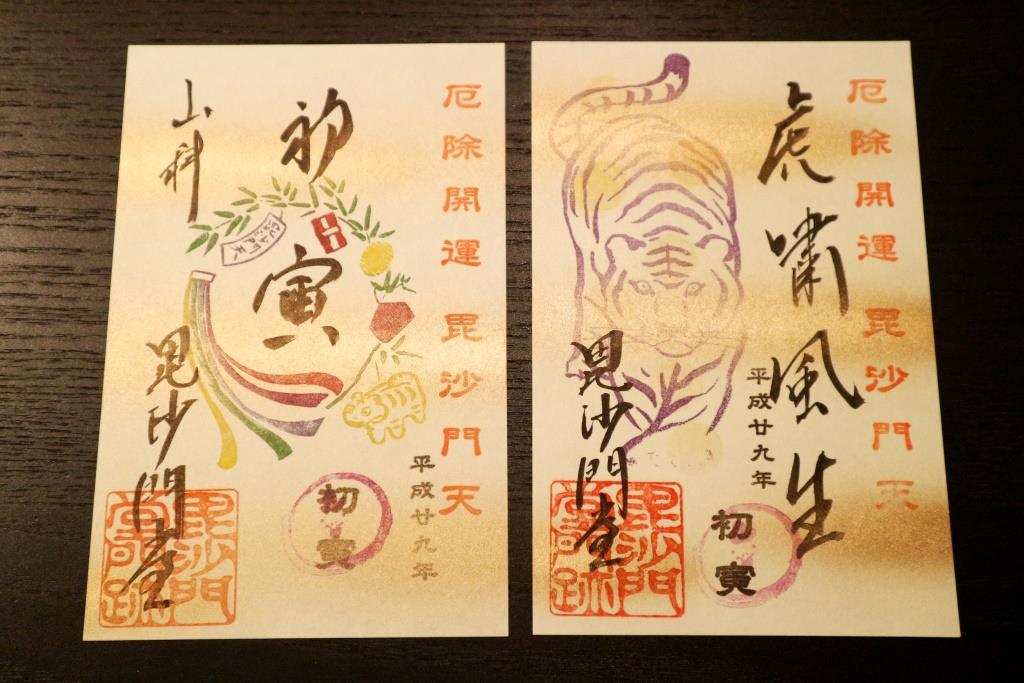 厄除開運 毘沙門天
初寅
山科
毘沙門堂
平成廿九年
初寅
毘沙門
厄除開運 毘沙門天
虎嘯風生
平成廿九年
毘沙門堂
初寅
毘沙門